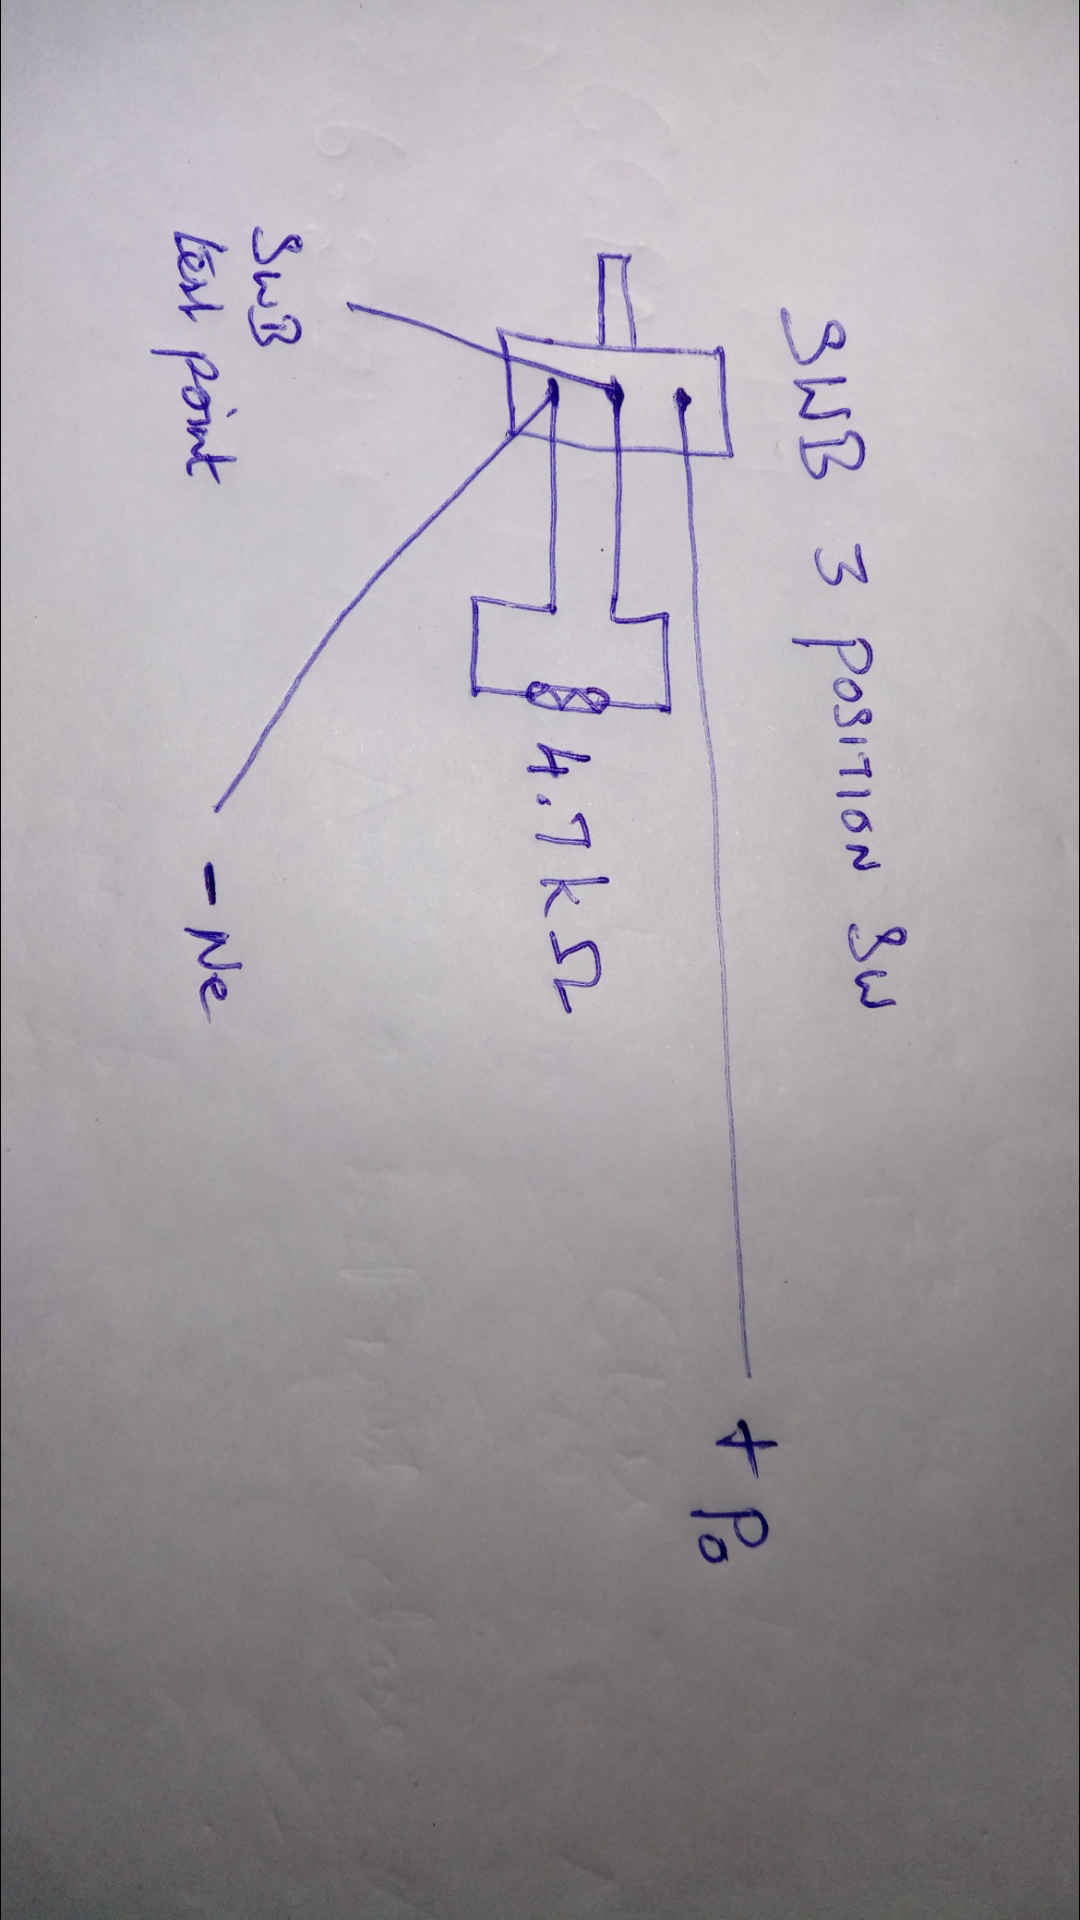 SWB 3 POSITION SW
+ Po
4.7kΩ
SWB
test point
- Ne